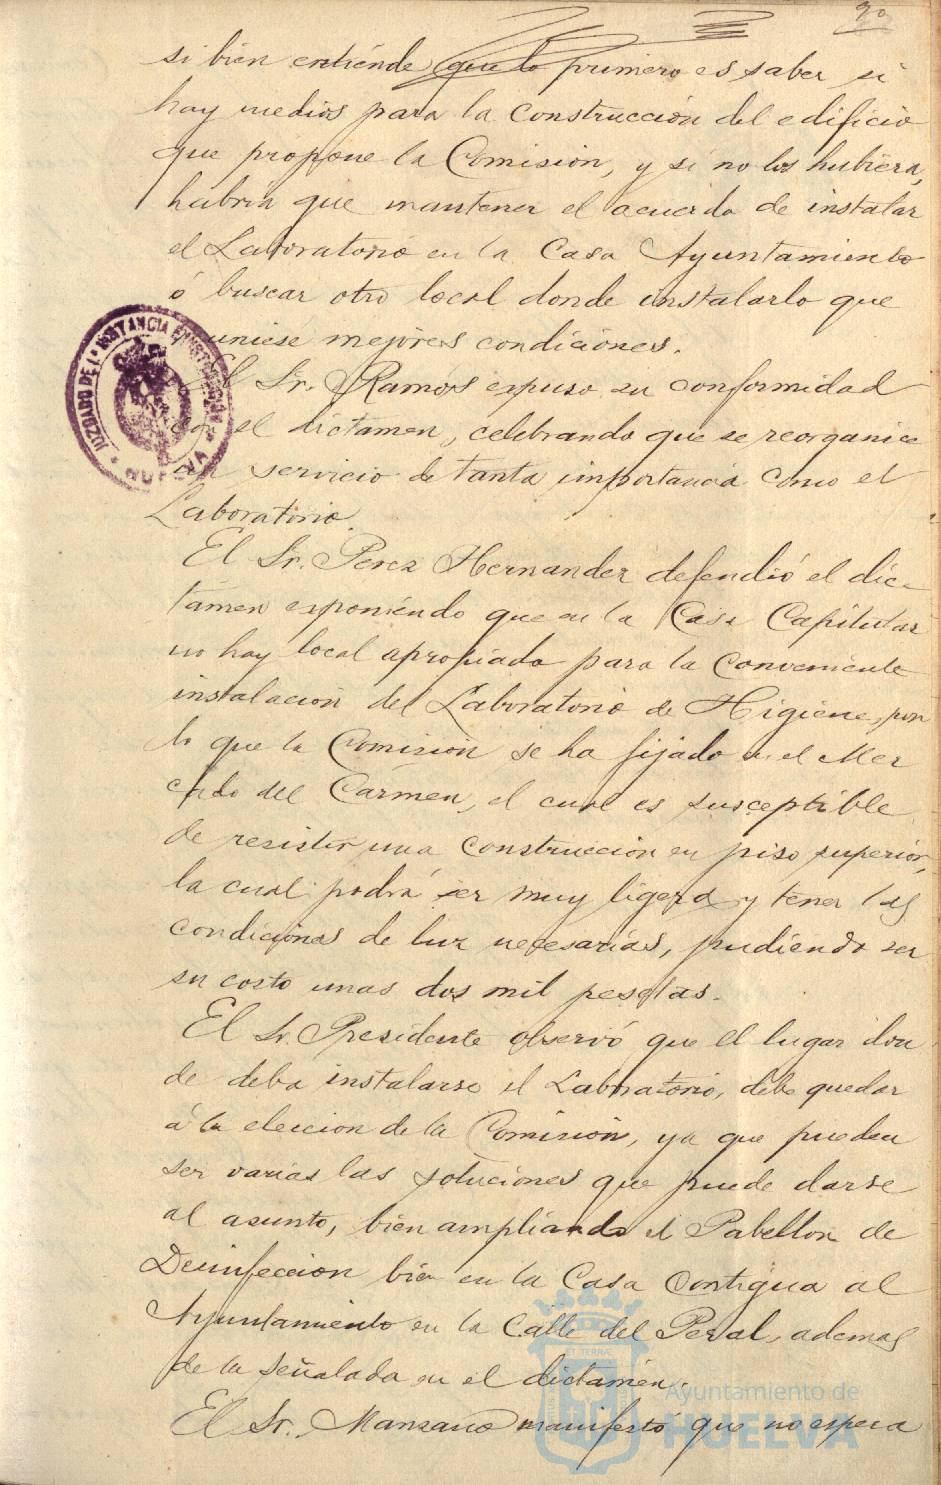 90
si bien entiénde que lo primero es saber si
hay medios para la Construcción del edificio
que propone la Comisión, y si no los hubiera,
habria que mantener el acuerdo de instalar
el Laboratorio en la Casa Ayuntamiento
ó buscar otro local donde instalarlo que
uniese mejores condiciones.
El Sr. Ramos espuso su conformidad
con el dictamen, celebrando que se reorganice
un servicio de tanta importancia como el
Laboratorio.
El Sr. Perez Hernandez defendió el dic-
tamen esponiendo que en la Casa Capitular
no hay local apropiado para la conveniente
instalacion del Laboratorio de Higiene, por
lo que la Comisión se ha fijado en el Mer
cado del Carmen, el cual es susceptible
de resistir una construccion en piso superior,
la cual podrá ser muy ligera y tener las
condiciones de luz necesarias, pudiendo ser
su costo unas dos mil pesetas.
El Sr. Presidente observó que el lugar don
de deba instalarse el Laboratorio, debe quedar
á la eleccion de la Comisión, ya que pueden
ser varias las soluciones que puede darse
al asunto, bien ampliando el Pabellon de
Desinfeccion bien en la Casa Contigua al
Ayuntamiento en la Calle del Peral, ademas
de la señalada en el dictamén.
El Sr. Manzano manifesto que no espera
JUZGADO DE 1ª INSTANCIA É INSTRUCCIÓN
HUELVA
Ayuntamiento de
HUELVA